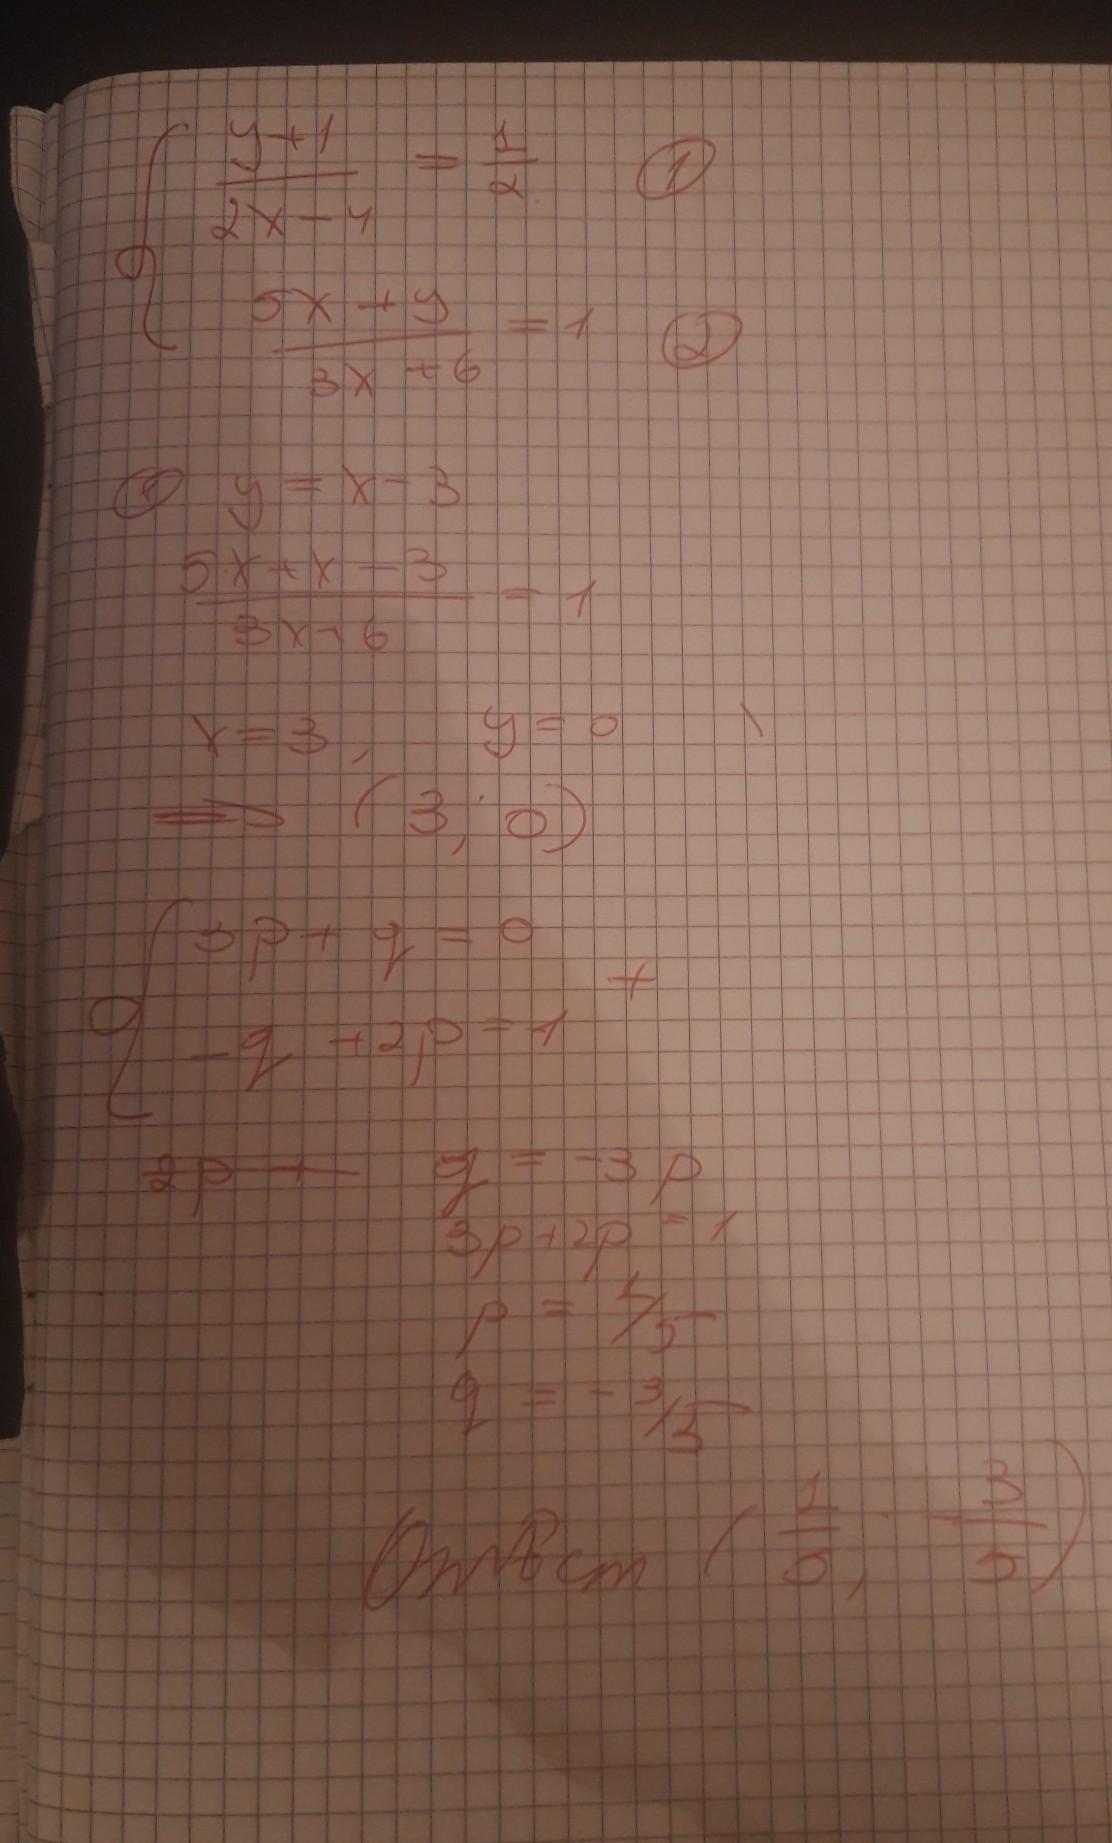 { (y+1)/(2x-4) = 1/2 ①
(5x+y)/(3x+6) = 1 ②
① y = x-3
(5x+x-3)/(3x+6) = 1
x=3, y=0
=> (3; 0)
{ 3p + q = 0
-q + 2p = 1 +
2p + q = -3p
3p+2p = 1
p = 1/5
q = -3/5
Ответ (1/5; -3/5)